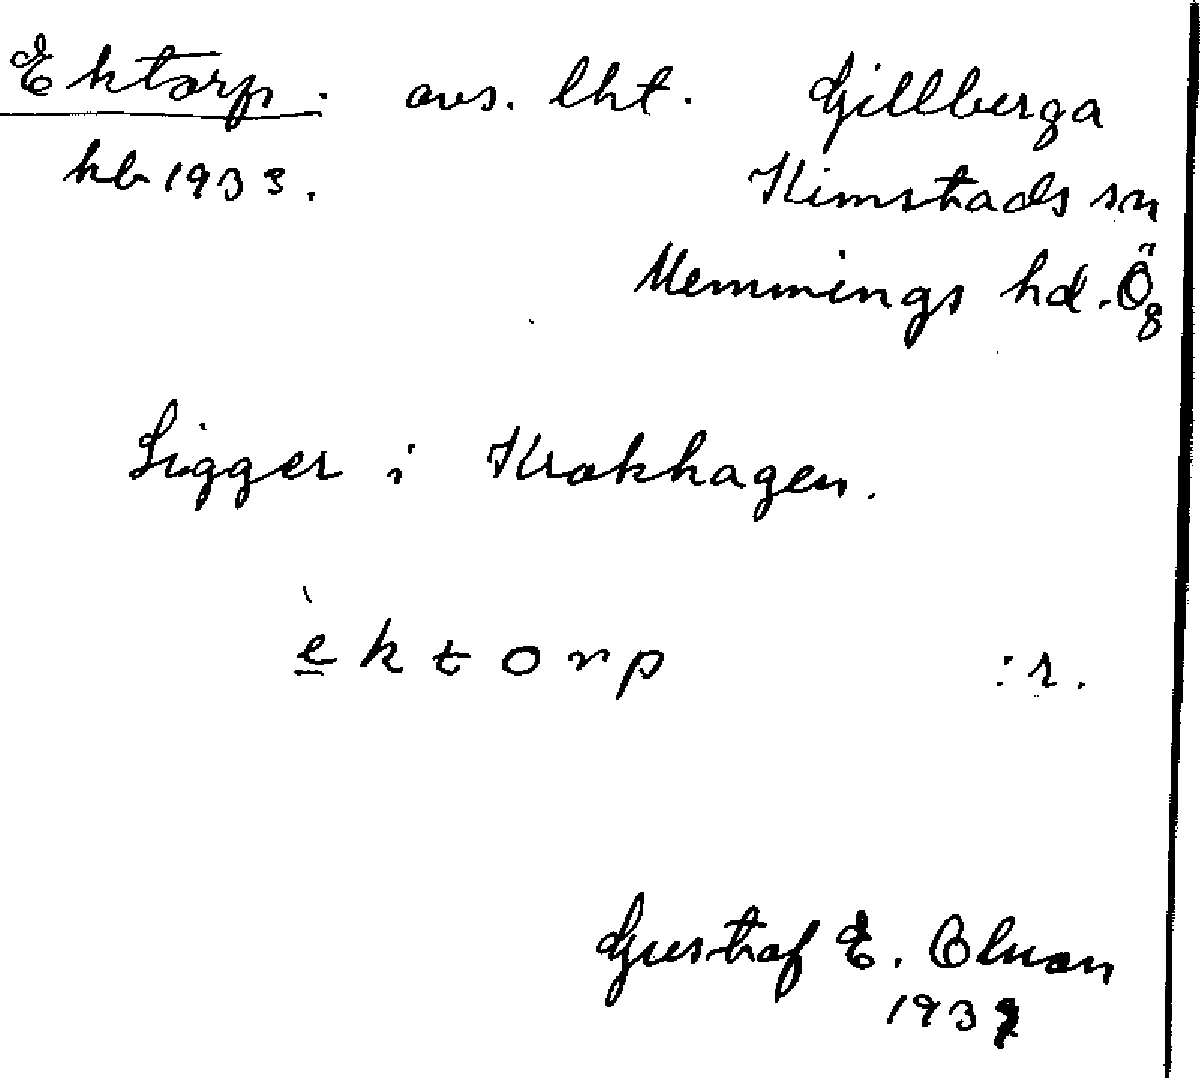 Ektorp. avs. lht. Gillberga
kb 1933. Kimstads sn
Memmings hd. Ög
Ligger i Krokhagen.
è̱ktorp :r.
Gustaf E. Olson
193